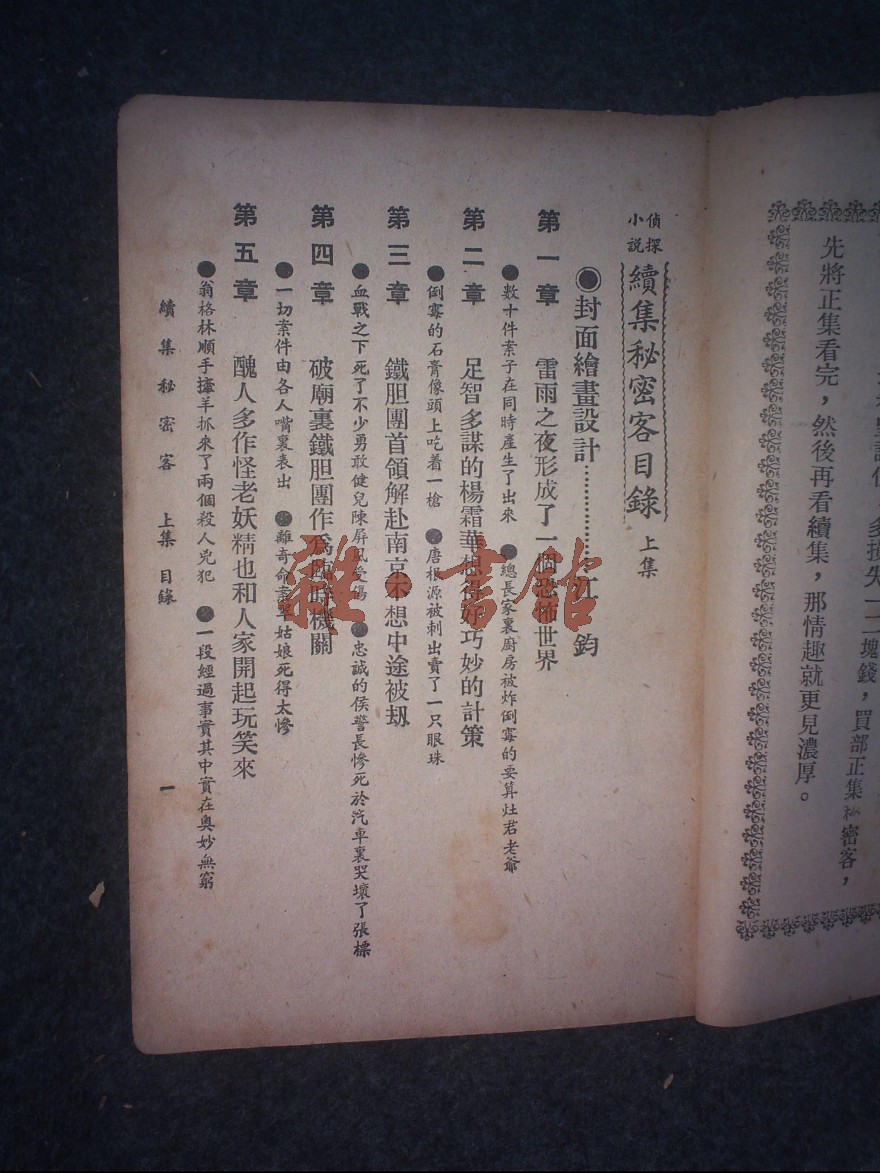 先將正集看完，然後再看續集，那情趣就更見濃厚。
偵探小說 續集秘密客目錄 上集
◉封面繪畫設計…………江 鈞
第一章 雷雨之夜形成了一個恐怖世界
●數十件案子在同時產生了出來 ●總長家裏廚房被炸倒霉的要算灶君老爺
第二章 足智多謀的楊霜華想得好巧妙的計策
●倒霉的石膏像頭上吃着一槍 ●唐根源被刺出賣了一只眼珠
第三章 鐵胆團首領解赴南京不想中途被刼
●血戰之下死了不少勇敢健兒陳屏風受傷 ●忠誠的侯警長慘死於汽車裏哭壞了張標
第四章 破廟裏鐵胆團作爲臨時機關
●一切案件由各人嘴裏表出 ●離奇命案單姑娘死得太慘
第五章 醜人多作怪老妖精也和人家開起玩笑來
●翁格林順手撁羊抓來了兩個殺人兇犯 ●一段經過事實其中實在奥妙無窮
續集秘密客 上集 目錄 一
雜·書館